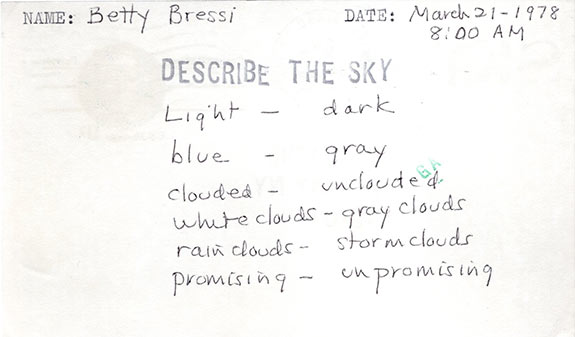 NAME: Betty Bressi DATE: March 21-1978
8:00 AM
DESCRIBE THE SKY
Light - dark
blue - gray
GA
clouded - unclouded
white clouds - gray clouds
rain clouds - storm clouds
promising - unpromising